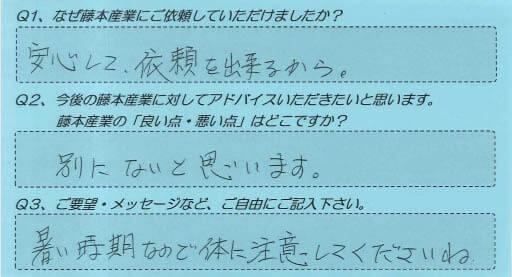 Q1、なぜ藤本産業にご依頼していただけましたか？
安心して、依頼を出来るから。
Q2、今後の藤本産業に対してアドバイスいただきたいと思います。
藤本産業の「良い点・悪い点」はどこですか？
別にないと思います。
Q3、ご要望・メッセージなど、ご自由にご記入下さい。
暑い時期なので体に注意してくださいね